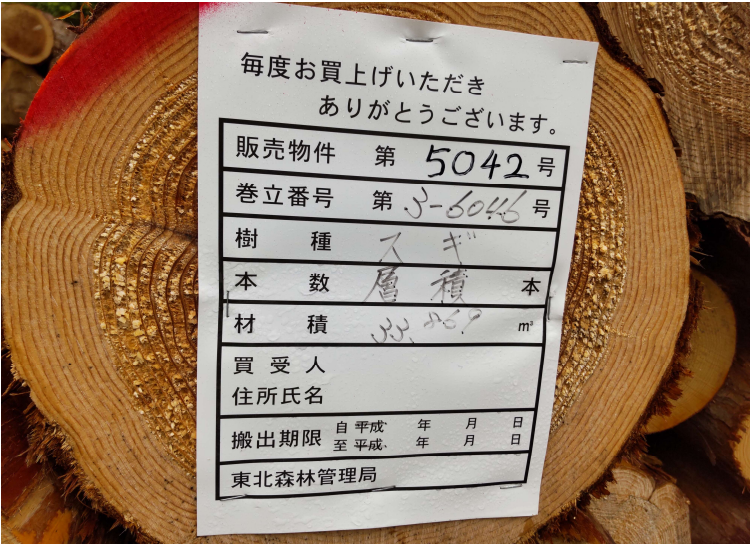 毎度お買上げいただき
ありがとうございます。
販売物件 第 5042 号
巻立番号 第 3-6046 号
樹種 スギ
本数 層積 本
材積 33.869 m³
買受人
住所氏名
搬出期限 自 平成 年 月 日
至 平成 年 月 日
東北森林管理局